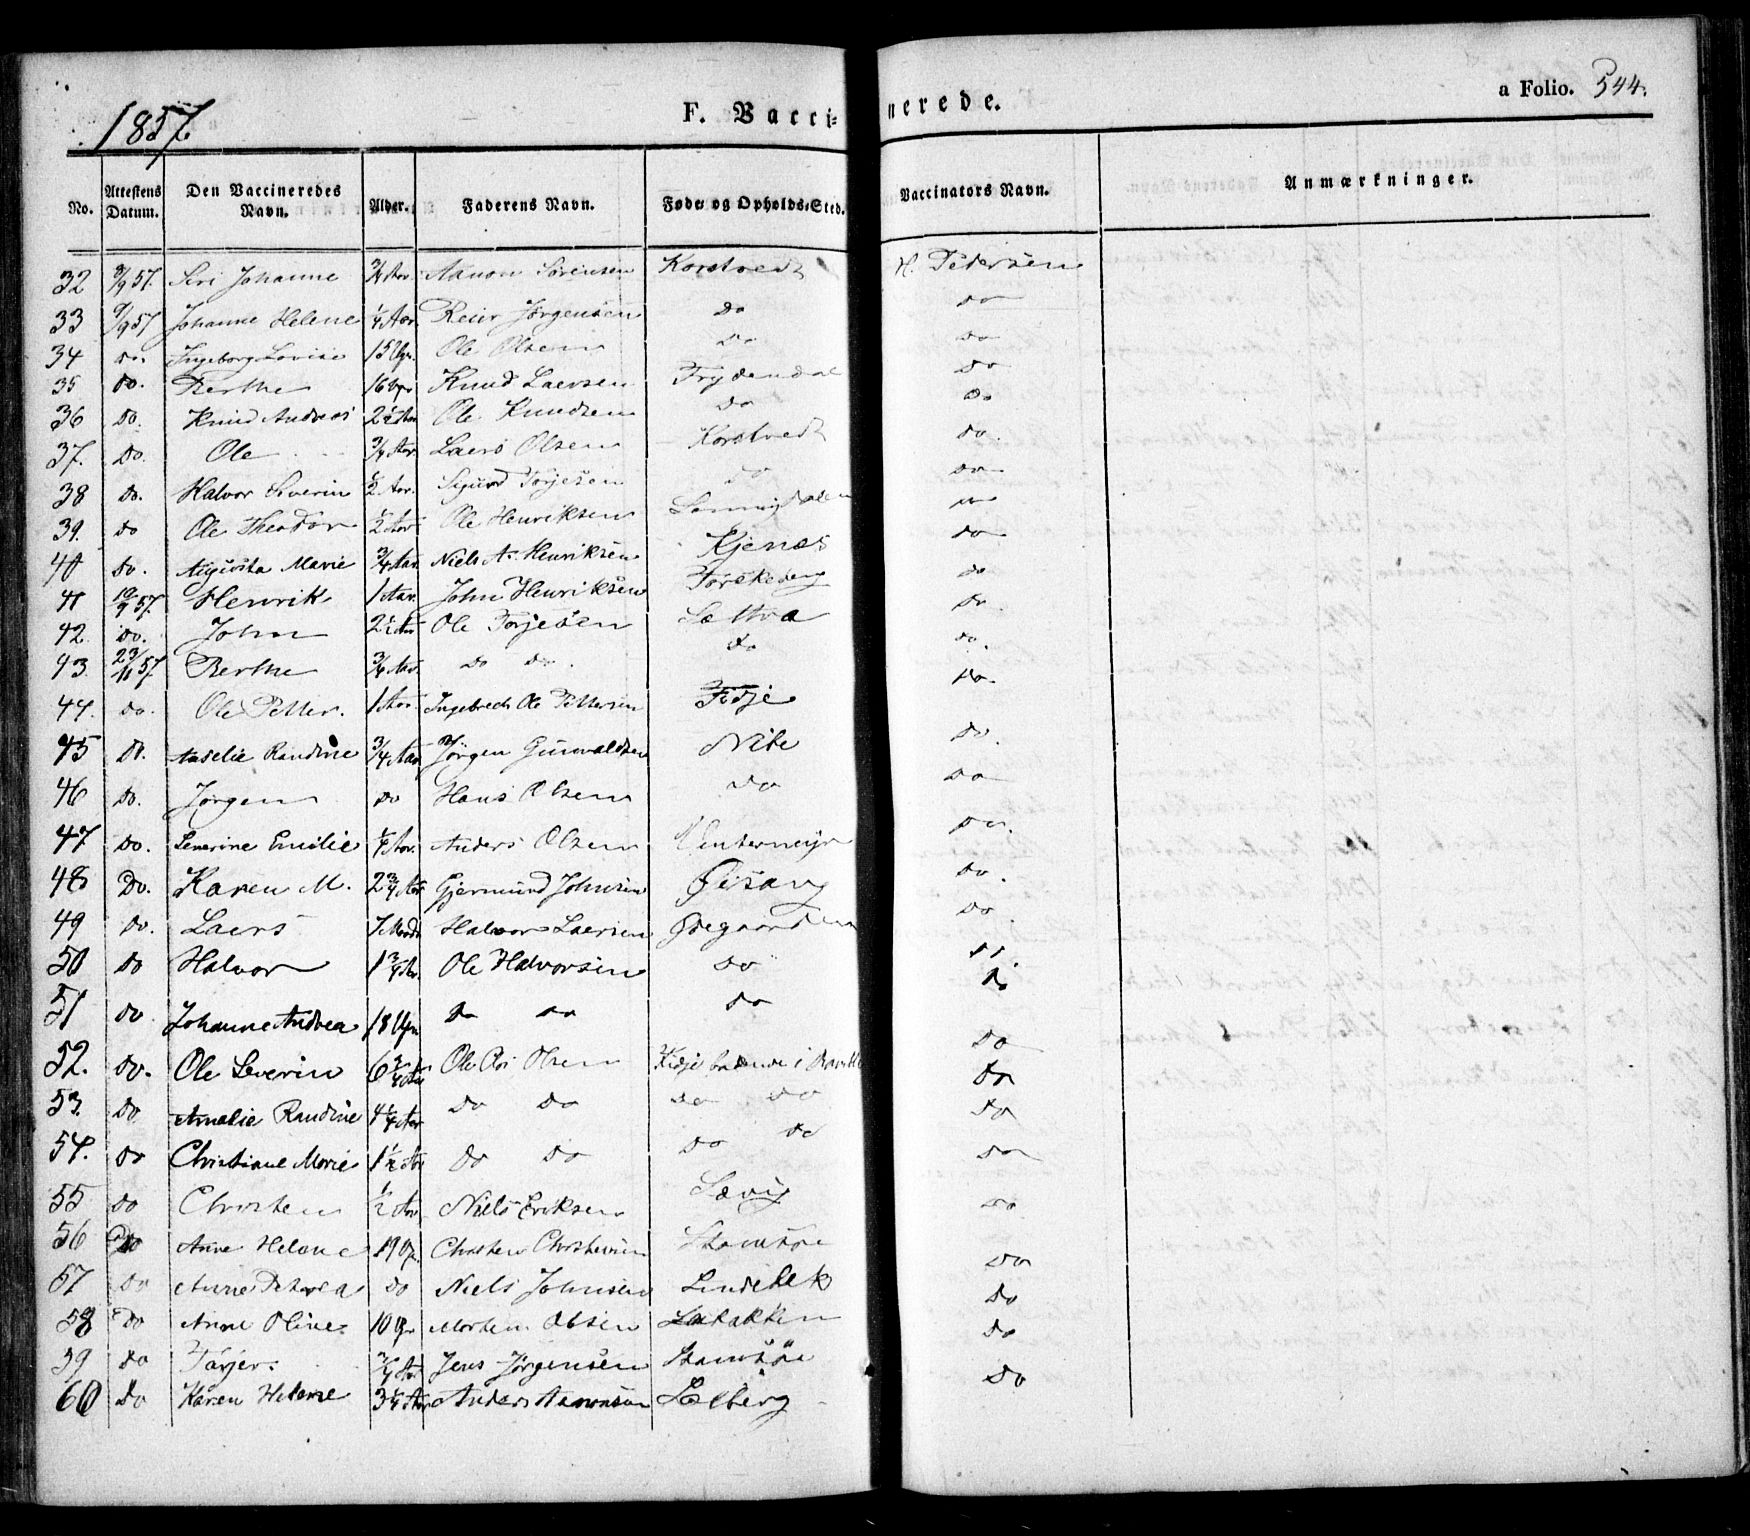 1857.
F. Vaccinerede.
a Folio. 544.
No. Attestens Datum. Den Vaccineredes Navn. Alder. Faderens Navn. Føde- og Opholds-Sted. Vaccinators Navn. Anmærkninger.
32 9/9 57. Siri Johanne 3/4 Aar Aanon Sörensen Korstvedt H. Pedersen
33 9/9 57 Johanne Helene 1/4 Aar Reier Jörgensen Do Do
34 Do. Ingeborg Lovise 15 Ugr. Ole Olsen Do Do
35 Do. Berthe 16 Ugr Knud Laersen Frydendal Do
36 Do. Knud Andreas 2 1/2 Aar Ole Knudsen Do Do
37. Do. Ole 3/4 Aar. Laers Olsen Korstvedt Do.
38 Do. Halvor Severin 1/2 Aar. Sigurd Torjesen Do Do
39. Do Ole Theodor 1/2 Aar Ole Henriksen Do
40 Do. Augusta Marie 3/4 Aar. Niels A. Henriksen Kjenæs Do
41 19/9 57. Henrik 1 Aar. John Henriksen Torskeberg Do
42 Do. John 2 1/2 Aar Ole Torjesen Sættra Do.
43. 23/11 57. Berthe 3/4 Aar. Do Do. Do Do.
44. Do. Ole Petter. 1 Aar. Ingebreth Ole Pettersen Fidje Do.
45 Do. Amelie Randine 3/4 Aar Jörgen Gunvaldsen Nibe Do.
46 Do. Jörgen Do Hans Olsen Do Do
47 Do. Severine Emilie 1/4 Aar. Anders Olsen Do.
48 Do. Karen M. 2 3/4 Aar Gjermund Johnsen Öisang Do.
49 Do. Laers 7 Maadr Halvor Laersen Ödegaarden Do.
50 Do Halvor 1 3/4 Ar. Ole Halvorsen Do Do.
51 Do Johanne Andrea 18 Ugr Do Do Do Do
52. Do. Ole Severin 6 3/4 Aar Ole Olsen Fidje Do
53. Do Amalie Randine 4 1/4 Aar Do Do Do Do Do
54. Do Christiane Marie 1 1/2 Ar Do Do Do Do Do
55 Do Christen 1/2 Aar Niels Eriksen Sævig Do
56 Do Anne Helene 19 Ugr. Christen Christensen Do
57 Do Anne Petrea Do Niels Johnsen Lindebek Do
58 Do Anne Oline. 10 Ugr Morten Olsen Labakken Do
59 Do Tarjer. 3/4 Aar Jens Jörgensen Do
60 Do Karen Helene 3 1/4 Aar Anders Aanonsen Do